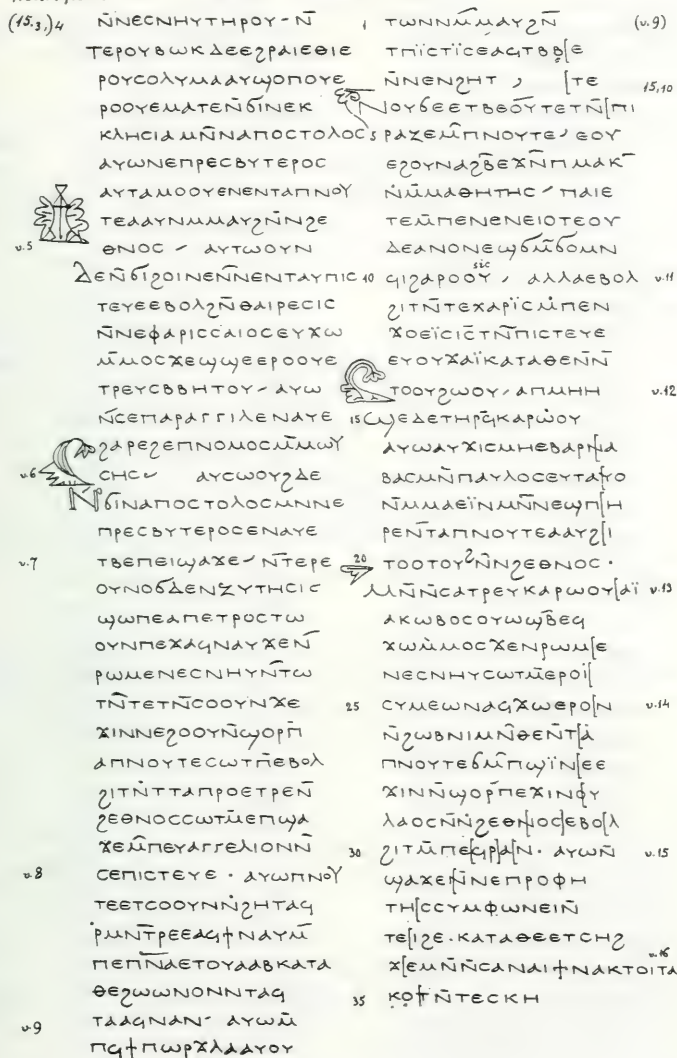 (15.3,)4
ⲛ̄ⲛⲉⲥⲛⲏⲩⲧⲏⲣⲟⲩ - ⲛ̄
ⲧⲉⲣⲟⲩⲃⲱⲕⲇⲉⲉϩⲣⲁⲓⲉⲑⲓⲉ
ⲣⲟⲩⲥⲟⲗⲩⲙⲁⲁⲩϣⲟⲡⲟⲩⲉ
ⲣⲟⲟⲩⲉⲙⲁⲧⲉⲛ̄ϭⲓⲛⲉⲕ
ⲕⲗⲏⲥⲓⲁⲙⲛ̄ⲛⲁⲡⲟⲥⲧⲟⲗⲟⲥ
ⲁⲩⲱⲛⲉⲡⲣⲉⲥⲃⲩⲧⲉⲣⲟⲥ
ⲁⲩⲧⲁⲙⲟⲟⲩⲉⲛⲉⲛⲧⲁⲡⲛⲟⲩ
ⲧⲉⲁⲁⲩⲛⲙⲙⲁⲩϩⲛ̄ⲛϩⲉ
v.5 ⲑⲛⲟⲥ - ⲁⲩⲧⲱⲟⲩⲛ
ⲇⲉⲛ̄ϭⲓϩⲟⲓⲛⲉⲛ̄ⲛⲉⲛⲧⲁⲩⲡⲓⲥ
ⲧⲉⲩⲉⲉⲃⲟⲗϩⲛ̄ⲑⲁⲓⲣⲉⲥⲓⲥ
ⲛ̄ⲛⲉⲫⲁⲣⲓⲥⲥⲁⲓⲟⲥⲉⲩϫⲱ
ⲙ̄ⲙⲟⲥϫⲉϣϣⲉⲉⲣⲟⲟⲩⲉ
ⲧⲣⲉⲩⲥⲃⲃⲏⲧⲟⲩ - ⲁⲩⲱ
ⲛ̄ⲥⲉⲡⲁⲣⲁⲅⲅⲓⲗⲉⲛⲁⲩⲉ
ϩⲁⲣⲉϩⲉⲡⲛⲟⲙⲟⲥⲙ̄ⲙⲱⲩ̄
v.6 ⲥⲏⲥ ⲁⲩⲥⲱⲟⲩϩⲇⲉ
ⲛ̄ϭⲓⲛⲁⲡⲟⲥⲧⲟⲗⲟⲥⲙⲛⲛⲉ
ⲡⲣⲉⲥⲃⲩⲧⲉⲣⲟⲥⲉⲛⲁⲩⲉ
v.7 ⲧⲃⲉⲡⲉⲓϣⲁϫⲉ - ⲛ̄ⲧⲉⲣⲉ
ⲟⲩⲛⲟϭⲇⲉⲛⲍⲩⲧⲏⲥⲓⲥ
ϣⲱⲡⲉⲁⲡⲉⲧⲣⲟⲥⲧⲱ
ⲟⲩⲛⲡⲉϫⲁϥⲛⲁⲩϫⲉⲛ̄
ⲣⲱⲙⲉⲛⲉⲥⲛⲏⲩⲛ̄ⲧⲱ
ⲧⲛ̄ⲧⲉⲧⲛ̄ⲥⲟⲟⲩⲛϫⲉ
ϫⲓⲛⲛⲉϩⲟⲟⲩⲛ̄ϣⲟⲣⲡ̄
ⲁⲡⲛⲟⲩⲧⲉⲥⲱⲧⲡ̄ⲉⲃⲟⲗ
ϩⲓⲧⲛ̄ⲧⲧⲁⲡⲣⲟⲉⲧⲣⲉⲛ̄
ϩⲉⲑⲛⲟⲥⲥⲱⲧⲙ̄ⲉⲡϣⲁ
ϫⲉⲙ̄ⲡⲉⲩⲁⲅⲅⲉⲗⲓⲟⲛⲛ̄
v.8 ⲥⲉⲡⲓⲥⲧⲉⲩⲉ · ⲁⲩⲱⲡⲛⲟⲩ̄
ⲧⲉⲉⲧⲥⲟⲟⲩⲛⲛ̄ϩⲏⲧⲁϥ
ⲣⲙⲛ̄ⲧⲣⲉⲉⲁϥϯⲛⲁⲩⲙ̄
ⲡⲉⲡⲛ̄ⲁⲉⲧⲟⲩⲁⲁⲃⲕⲁⲧⲁ
ⲑⲉϩⲱⲱⲛⲟⲛⲛⲧⲁϥ
v.9 ⲧⲁⲁϥⲛⲁⲛ - ⲁⲩⲱⲙ̄
ⲡϥϯⲡⲱⲣϫⲗⲁⲁⲩⲟⲩ
1 ⲧⲱⲛⲛⲙ̄ⲙⲁⲩϩⲛ̄ (v.9)
ⲧⲡⲓ̈ⲥⲧⲓ̈ⲥⲉⲁϥⲧⲃⲃ[ⲉ
ⲛ̄ⲛⲉⲛϩⲏⲧ , [ⲧⲉ 15,10
ⲛⲟⲩϭⲉⲉⲧⲃⲉⲟⲩ̄ⲧⲉⲧⲛ̄[ⲡⲓ
5 ⲣⲁⲍⲉⲙ̄ⲡⲛⲟⲩⲧⲉ, ⲉⲟⲩ
ⲉϩⲟⲩⲛⲁϩⲃ̄ⲉϫⲛ̄ⲡⲙⲁⲕϩ̄
ⲛ̄ⲙ̄ⲙⲁⲑⲏⲧⲏⲥ - ⲡⲁⲓⲉ
ⲧⲉⲙ̄ⲡⲉⲛⲉⲛⲉⲓⲟⲧⲉⲟⲩ
ⲇⲉⲁⲛⲟⲛⲉϣϭⲙ̄ϭⲟⲙⲛ
10 ϥⲓϩⲁⲣⲟⲟⲩ̄ , ⲁⲗⲗⲁⲉⲃⲟⲗ v.11
sic
ϩⲓⲧⲛ̄ⲧⲉⲭⲁⲣⲓ̈ⲥⲙ̄ⲡⲉⲛ
ϫⲟⲉⲓ̈ⲥⲓⲥ̄ⲧⲛ̄ⲡⲓⲥⲧⲉⲩⲉ
ⲉⲩⲟⲩϫⲁⲓ̈ⲕⲁⲧⲁⲑⲉⲛ̄ⲛ̄
ⲧⲟⲟⲩϩⲱⲟⲩ, ⲁⲡⲙⲏⲏ v.12
15 ϣⲉⲇⲉⲧⲏⲣϥ̄ⲕⲁⲣⲱⲟⲩ
ⲁⲩⲱⲁⲩϫⲓⲥⲙⲏⲉⲃⲁⲣⲛ[ⲁ
ⲃⲁⲥⲙⲛ̄ⲡⲁⲩⲗⲟⲥⲉⲩⲧⲁ[ⲩⲟ
ⲛ̄ⲙⲙⲁⲉⲓ̈ⲛⲙⲛ̄ⲛⲉϣⲡ[ⲏ
ⲣⲉⲛ̄ⲧⲁⲡⲛⲟⲩⲧⲉⲁⲁⲩϩ[ⲓ
20 ⲧⲟⲟⲧⲟⲩϩⲛ̄ⲛϩⲉⲑⲛⲟⲥ ·
ⲙⲛ̄ⲛ̄ⲥⲁⲧⲣⲉⲩⲕⲁⲣⲱⲟⲩ[ⲁⲓ̈ v.13
ⲁⲕⲱⲃⲟⲥⲟⲩⲱϣⲃ̄ⲉϥ
ϫⲱⲙ̄ⲙⲟⲥϫⲉⲛⲣⲱⲙ[ⲉ
ⲛⲉⲥⲛⲏⲩⲥⲱⲧⲙ̄ⲉⲣⲟⲓ̈[
25 ⲥⲩⲙⲉⲱⲛⲁϥϫⲱⲉⲣⲟ[ⲛ v.14
ⲛ̄ϩⲱⲃⲛⲓⲙⲛ̄ⲑⲉⲛ̄ⲧ[ⲁ
ⲡⲛⲟⲩⲧⲉϭⲙ̄ⲡϣⲓ̈ⲛ[ⲉⲉ
ϫⲓⲛⲛ̄ϣⲟⲣⲡ̄ⲉϫⲓⲛⲟ[ⲩ
ⲗⲁⲟⲥⲛ̄ⲛϩⲉⲑⲛ[ⲟⲥ]ⲉⲃⲟ[ⲗ
30 ϩⲓⲧⲙ̄ⲡⲉ[ϥⲣ]ⲁ[ⲛ · ⲁⲩⲱⲛ̄ v.15
ϣⲁϫⲉ[ⲛ̄ⲛⲉⲡⲣⲟⲫⲏ
ⲧⲏ[ⲥⲥⲩⲙⲫⲱⲛⲉⲓⲛ̄
ⲧⲉ[ⲓϩⲉ · ⲕⲁⲧⲁⲑⲉⲉⲧⲥⲏϩ
ϫ[ⲉⲙⲛ̄ⲛ̄ⲥⲁⲛⲁⲓϯⲛⲁⲕⲧⲟⲓⲧⲁ v.16
35 ⲕⲟϯⲛ̄ⲧⲉⲥⲕⲏ